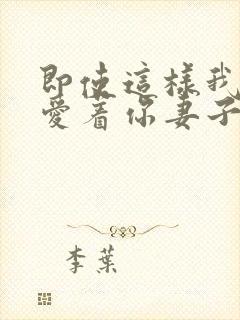 即使這樣我
愛着你妻子
李葉